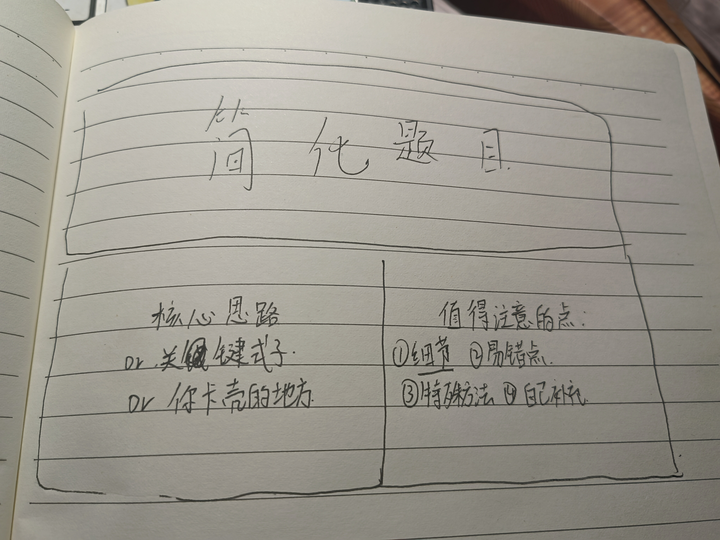 简化题目
核心思路
or 关键式子.
or 你卡壳的地方.
值得注意的点:
①细节 ②易错点.
③特殊方法 ④自己补充